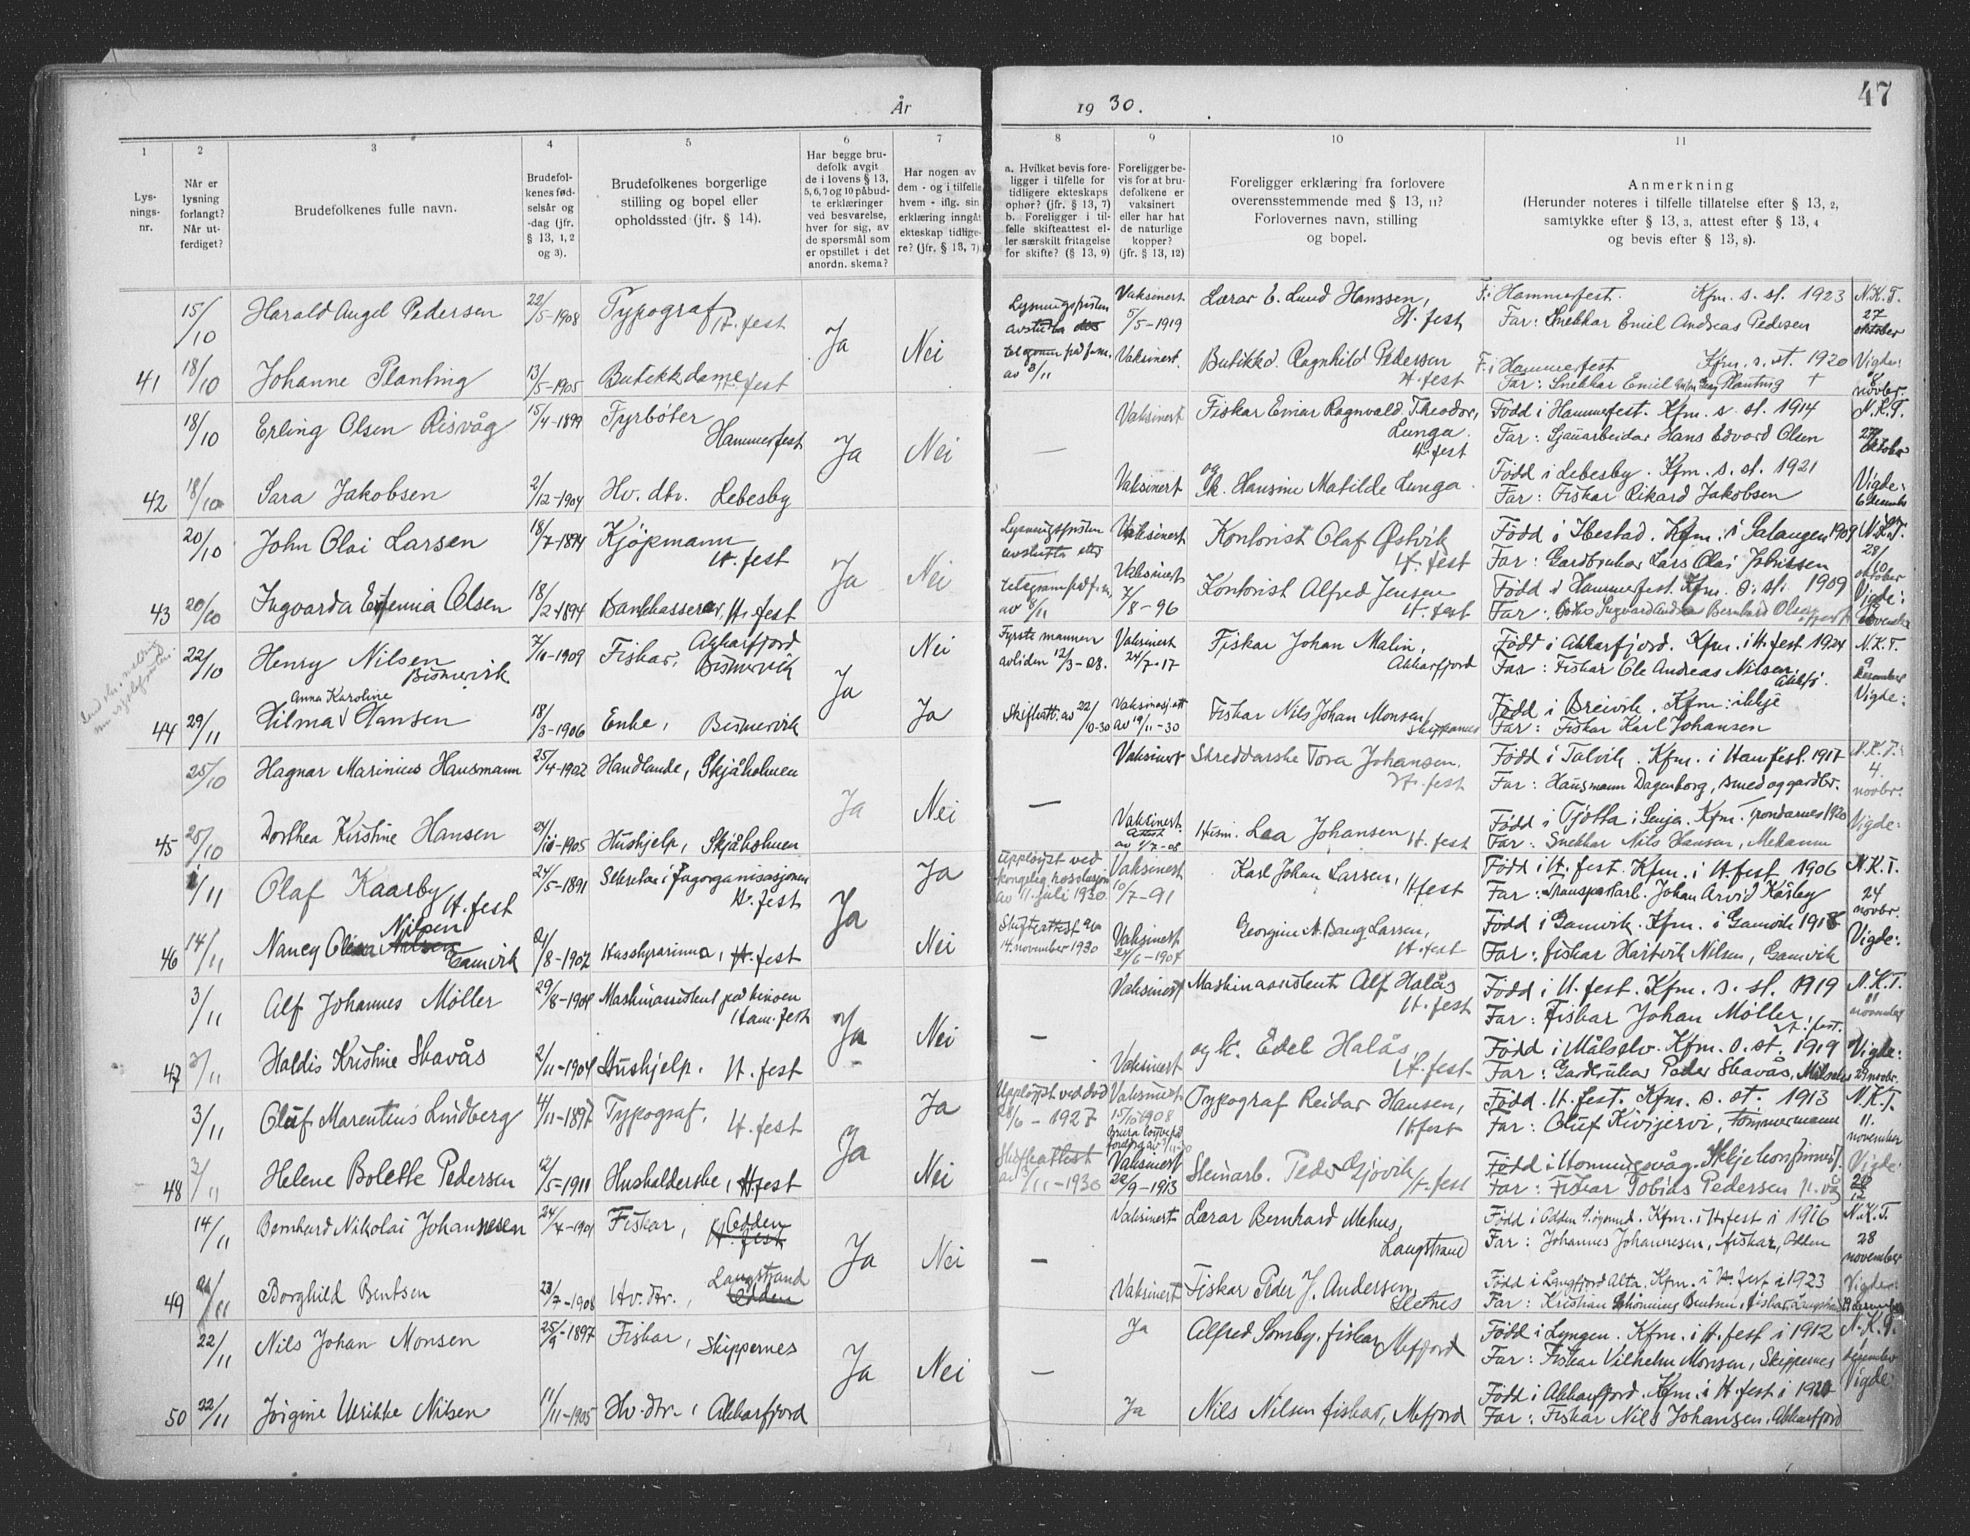 47
År 1930.
1
2
3
4
5
6
7
8
9
10
11
Lysningsnr.
Når er lysning forlangt? Når utferdiget?
Brudefolkenes fulle navn.
Brudefolkenes fødselsår og -dag (jfr. § 13, 1, 2 og 3).
Brudefolkenes borgerlige stilling og bopel eller opholdssted (jfr. § 14).
Har begge brudefolk avgit de i lovens § 13, 5, 6, 7 og 10 påbudte erklæringer ved besvarelse, hver for sig, av de spørsmål som er opstillet i det anordn. skema?
Har nogen av dem - og i tilfelle hvem - iflg. sin erklæring inngått ekteskap tidligere? (jfr. § 13, 7).
a. Hvilket bevis foreligger i tilfelle for tidligere ekteskaps ophør? (jfr. § 13, 7)
b. Foreligger i tilfelle skifteattest eller særskilt fritagelse for skifte? (§ 13, 9)
Foreligger bevis for at brudefolkene er vaksinert eller har hat de naturlige kopper? (jfr. § 13, 12)
Foreligger erklæring fra forlovere overensstemmende med § 13, 11? Forlovernes navn, stilling og bopel.
Anmerkning
(Herunder noteres i tilfelle tillatelse efter § 13, 2, samtykke efter § 13, 3, attest efter § 13, 4 og bevis efter § 13, 8).
15/10 Harald Angel Pedersen 22/5-1908 Typograf H.fest Ja Nei Lysningsfristen Vaksinert 5/5-1919 Lærar E. Lund Hanssen, H.fest F. i Hammerfest. Kfm. s. st. 1923 Far: Snekkar Emil Andreas Pedersen N.K.T. 27 oktober
41 18/10 Johanne Planting 13/5-1905 Butikkdame H.fest av 8/11 Vaksinert. Butikkd. Ragnhild Pedersen H.fest F. i Hammerfest Kfm. s. st. 1920 Far: Snekkar Emil Planting † Vigde: novbr.
18/10 Erling Olsen Risvåg 15/4-1899 Fyrbøter Hammerfest Ja Nei — Vaksinert Fiskar Einar Ragnvald Theodor Lunga. H.fest Född i Hammerfest. Kfm. s. st. 1914 Far: Sjauarbeidar Hans Edvard Olsen N.K.T. oktober
42 18/10 Sara Jakobsen 2/12-1904 Hv. dtr. Lebesby Vaksinert og fk. Hansine Matilde Lunga. Född i Lebesby. Kfm. s. st. 1921 Far: Fiskar Rikard Jakobsen Vigde:
20/10 John Olai Larsen 18/7-1894 Kjøpmann H.fest Ja Nei Lysningsfristen Vaksinert Kontorist Olaf Østvik H.fest Född i Ibestad. Kfm. i Salangen 1909 Far: Gardbrukar Lars Olai N.K.T. 28/10 oktober
43 20/10 Ingvarda Eufemia Olsen 18/2-1894 Bankkasserar, H.fest av 8/11 Vaksinert 7/8-96 Kontorist Alfred Jensen H.fest Född i Hammerfest. Kfm. s. st. 1909 Far: Ingvard Bernhard Olsen Vigde:
22/10 Henry Nilsen Bismervik 7/10-1909 Fiskar, Akkarfjord Bismervik Ja Nei Fyrste mannen avliden 12/3-28. Vaksinert 24/7-17 Fiskar Johan Malin, Akkarfjord Född i Akkarfjord. Kfm. i H.fest 1924 Far: Fiskar Ole Andreas Nilsen, Akkfj. N.K.T. 9 desember
44 29/11 Hilma Anna Karoline Hansen 18/3-1906 Enke, Bismervik Ja Skifteatt. av 22/10-30 av 19/11-30 Fiskar Nils Johan Monsen Skippernes Född i Breivik. Kfm: ikkje Far: Fiskar Karl Johansen Vigde:
25/10 Hagnar Marinius Hausmann 25/4-1902 Handlande, Skjåholmen Ja Nei — Vaksinert Skreddarske Tora Johansen. H.fest Född i Talvik. Kfm. i Hamfest. 1917 Far: Hausmann Dagenborg, smed og gardbr. N.K.T. 4. novbr.
45 25/10 Dorthea Kristine Hansen 24/10-1905 Hushjelp, Skjåholmen Vaksinert. Attest av 1/7-08 Husm. Lea Johansen H.fest Född i Tjötta i Senja. Kfm. Trondarnes 1920 Far: Snekkar Nils Hansen, Mekamn Vigde:
1/11 Olaf Kaarby H.fest 24/5-1891 Sekretær i fagorganisasjonen H.fest Ja Ja Uppløyst ved kongelig resolusjon av 11. juli 1930. Vaksinert 10/7-91 Karl Johan Larsen, H.fest Född i H.fest. Kfm. i H.fest 1906 Far: Transportarb. Johan Arvid Kårby N.K.T. 24 novbr.
46 14/11 Nancy Olina Nilsen Gamvik 21/8-1902 Husstyrarinna, H.fest Nei Skifteattest av 14. november 1930 Vaksinert 24/6-1904 Georgine A. Bang Larsen, H.fest Född i Gamvik. Kfm. i Gamvik 1918 Far: fiskar Hartvik Nilsen, Gamvik Vigde:
3/11 Alf Johannes Møller 29/8-1904 Maskinassistent ved kinoen Ham.fest Ja Nei — Vaksinert Maskinassistent Alf Halås H.fest Född i H.fest. Kfm. s. st. 1919 Far: Fiskar Johan Møller, H.fest. N.K.T. 11 november
47 3/11 Haldis Kristine Skavås 2/11-1904 Hushjelp. H.fest Vaksinert og fr. Edel Halås H.fest Född i Målselv. Kfm. s. st. 1919 Far: Gardbrukar Peder Skavås, Målselv Vigde: 29 novbr.
3/11 Oluf Marentius Lindberg 4/11-1897 Typograf, H.fest Ja Ja Uppløyst ved død 28/6-1927 Vaksinert 15/10 1908 Typograf Reidar Hansen, H.fest Född H.fest. Kfm. s. st. 1913 Far: Oluf Kivijervi, tömmermann N.K.T. 11. november
48 3/11 Helene Bolette Pedersen 12/5-1911 Husholderske, H.fest Nei Skifteattest av 3/11-1930 Vaksinert 22/9-1913 Steinarb. Peder Gjövik H.fest Född i Honningsvåg. Ikkje konfirmert Far: Fiskar Tobias Pedersen H.våg Vigde
14/11 Bernhard Nikolai Johannesen 24/4-1901 Fiskar, Odden H.fest Ja Nei — Vaksinert Lærar Bernhard Mehus, Langstrand Född i Odden. Kfm. i H.fest i 1916 Far: Johannes Johannesen, fiskar, Odden N.K.T. 28 november
49 21/11 Borghild Bentsen 23/7-1908 Hv. dtr., Langstrand Odden Vaksinert Fiskar Peder J. Andersen, Sletnes Född i Langfjord Alta. Kfm. i H.fest i 1923 Far: Kristian Schönning Bentsen, fiskar, Langstrand Vigde
22/11 Nils Johan Monsen 25/9-1897 Fiskar, Skippernes Ja Nei — Ja Alfred Somby, fiskar, Mefjord Född i Lyngen. Kfm. i H.fest i 1912 Far: Fiskar Vilhelm Monsen, Skippernes N.K.T. desember
50 22/11 Jørgine Ulrikke Nilsen 11/11-1905 Hv. dtr., Akkarfjord Ja Nils Nilsen fiskar, Mefjord Född i Akkarfjord. Kfm. i H.fest i 1920 Far: Fiskar Nils Johansen, Akkarfjord Vigde